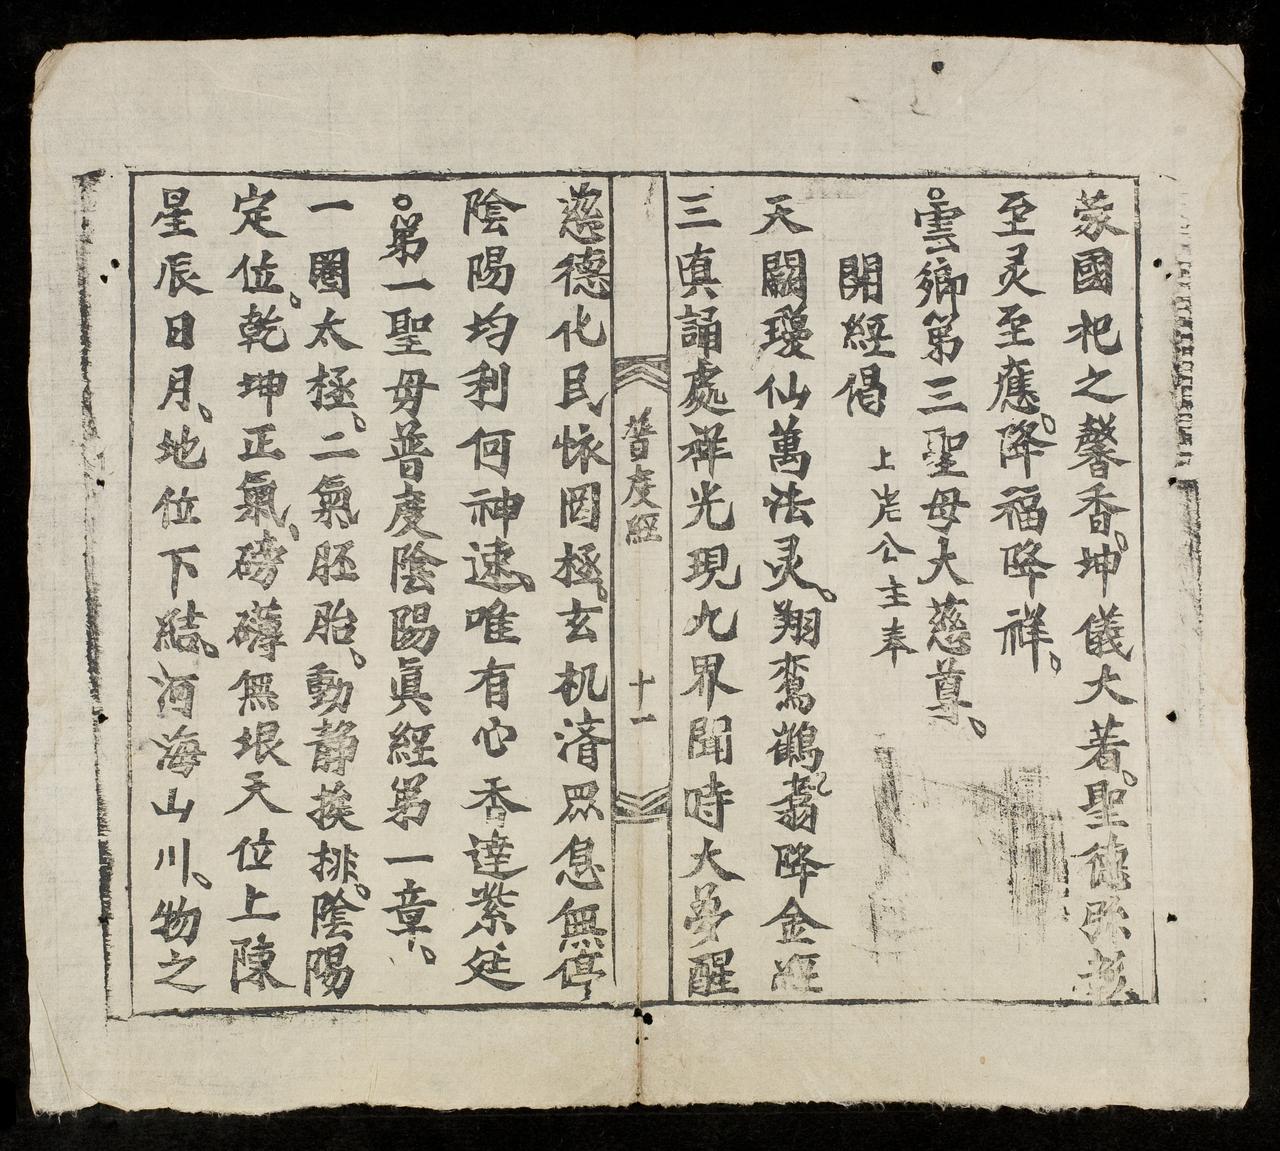 蒙國祀之馨香。坤儀大著。聖德弥彰
至灵至應。降福降祥。
○雲鄉第三聖母大慈尊。
開經偈 上岸公主奉
天闕瓊仙萬法灵。翔鸞鶴翥降金經
三真誦處祥光現九界聞時大夢醒
普度經 十一
慈德化民咏罔極。玄机濟眾急無停
陰陽均利何神速。唯有心香達紫廷
○第一聖母普度陰陽眞經第一章。
一圈太極。二氣胚胎。動静挨排。陰陽
定位。乾坤正氣。磅礴無垠天位上陳
星辰日月。地位下結。河海山川。物之